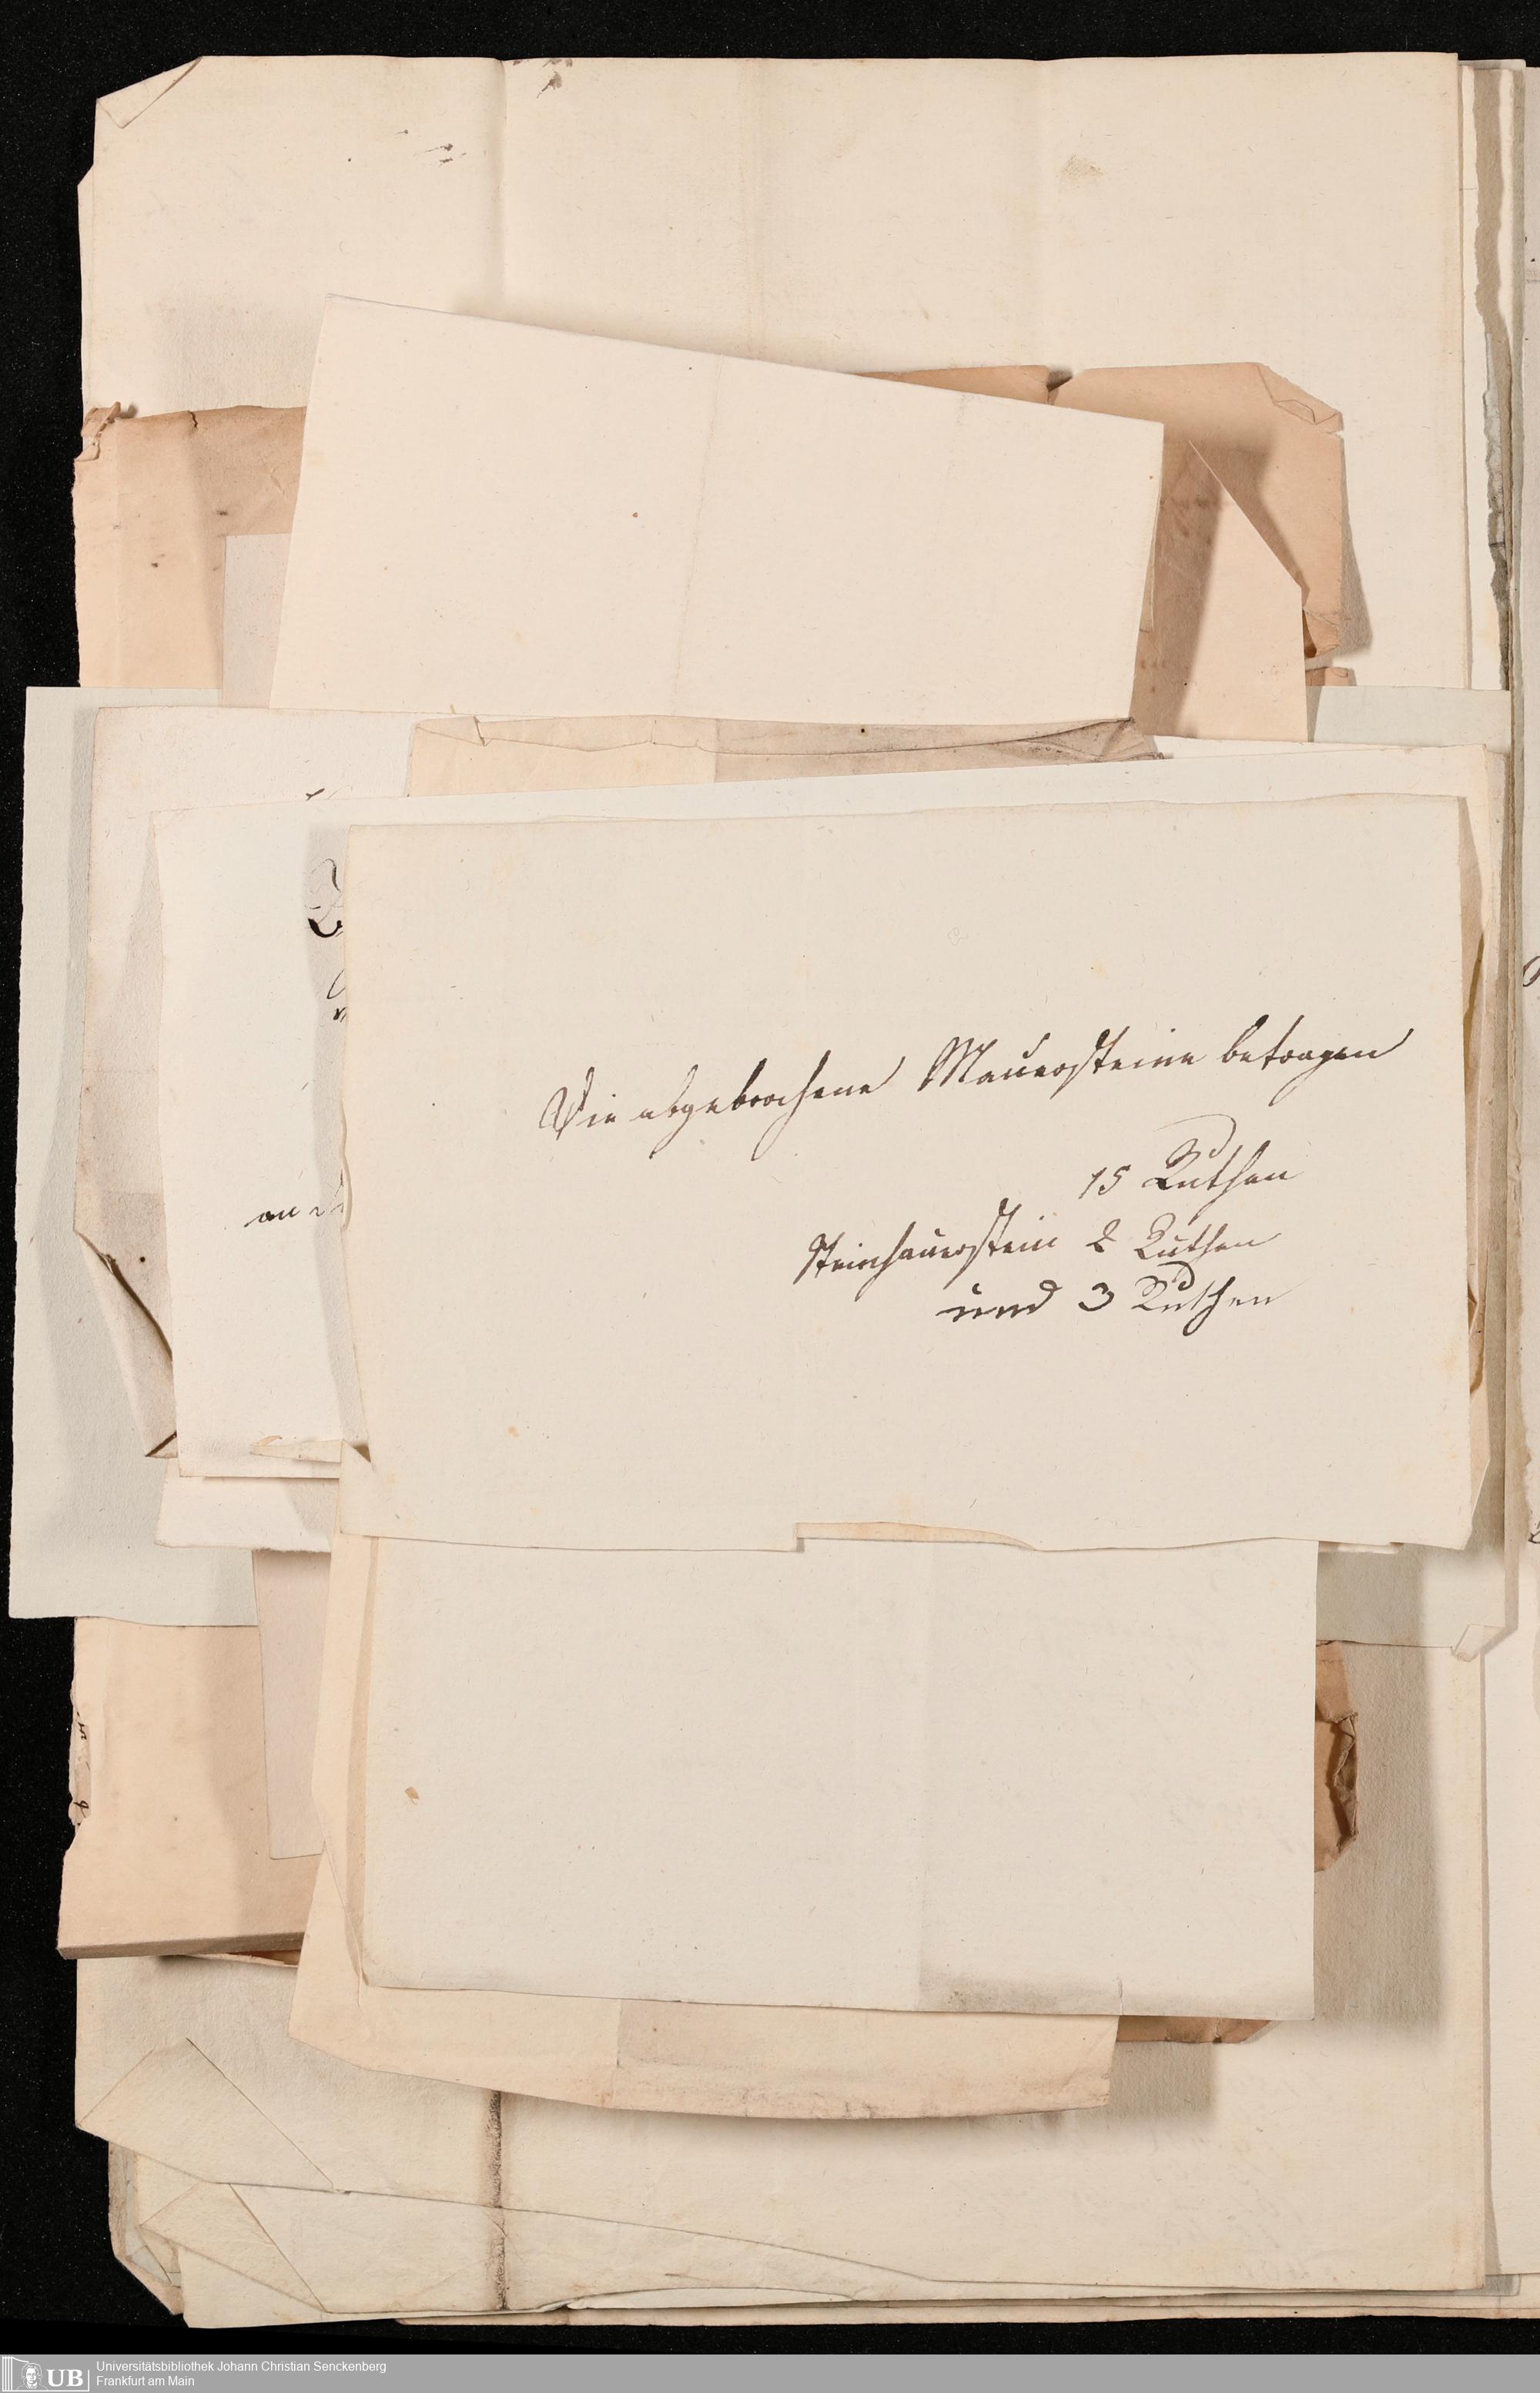 Die abgebrochene Mauersteine betragen
15 Ruthen
Steinhauerstein 2 Ruthen
und 3 Ruthen
UB
Universitätsbibliothek Johann Christian Senckenberg
Frankfurt am Main